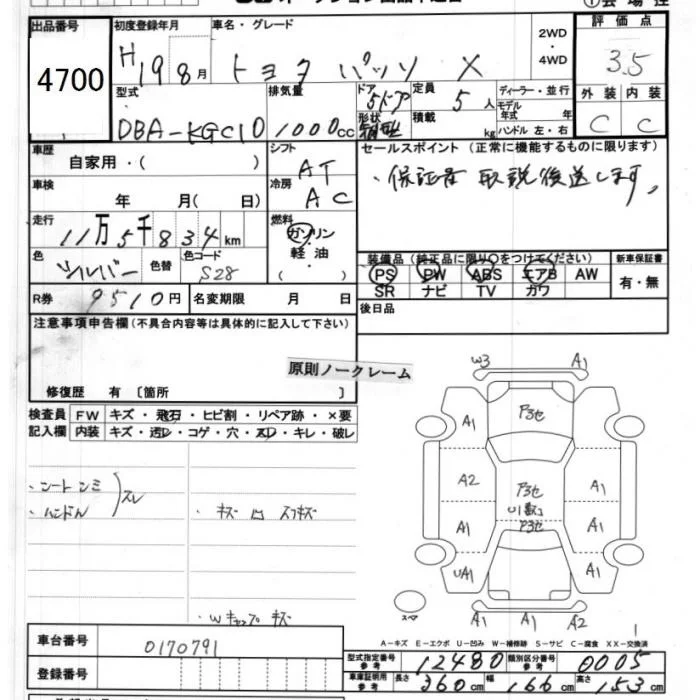 出品番号 4700
初度登録年月 H19 8月
車名・グレード トヨタ パッソ X
2WD・4WD
評価点 3.5
外装 C 内装 C
型式 DBA-KGC10
排気量 1000cc
ドア形状 5ドア
定員 5人
積載 kg
ディーラー・並行
モデル年式 年
ハンドル 左・右
車歴 自家用・( )
シフト AT
セールスポイント(正常に機能するものに限ります)
・保証書 取説後送します。
車検 年 月( 日)
冷房 AC
走行 11万5千834km
燃料 ガソリン・軽油・
色 シルバー 色替 色コード S28
装備品(純正品に限り○をつけてください)
PS PW ABS エアB AW
SR ナビ TV カワ
新車保証書 有・無
R券 9510円 名変期限 月 日
後日品
注意事項申告欄(不具合内容等は具体的に記入して下さい)
原則ノークレーム
修復歴 有〔箇所 〕
検査員記入欄
FW キズ・飛石・ヒビ割・リペア跡・×要
内装 キズ・汚レ・コゲ・穴・スレ・キレ・破レ
・シートシミ
・ハンドル
スレ
・キズ 凹 スリキズ
・Wキャップ キズ
W3 A1
A1
A2 A1
A1 A1
UA1 A1
A1 A1 A2
スペア
1
A-キズ E-エクボ U-凹み W-補修跡 S-サビ C-腐食 XX-交換済
車台番号 0170791
型式指定番号参考 12480 類別区分番号参考 0005
登録番号
車庫証明用参考 長さ 360cm 幅 166cm 高さ 153cm